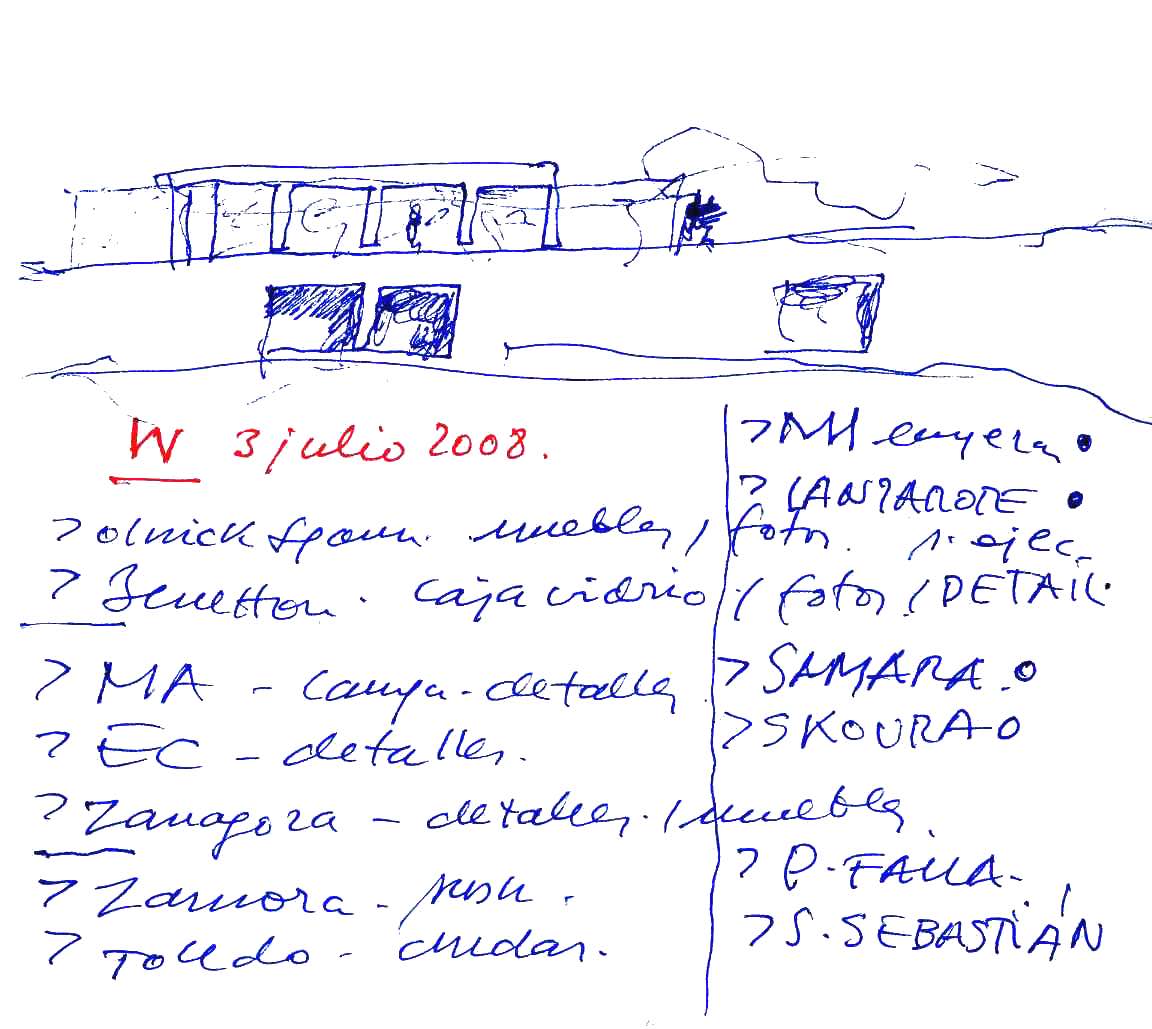 W 3 julio 2008.
> Olnick Spanu. muebles / fotos. p. ejec.
> Benetton. caja vidrio / fotos / DETAIL.
> MA - campa - detalles
> EC - detalles.
> Zaragoza - detalles. / muebles.
> Zamora -
> Toledo - dudas.
> MH
> LANZAROTE
> SAMARA.
> SKOURA
> P. FALLA.
> S. SEBASTIÁN